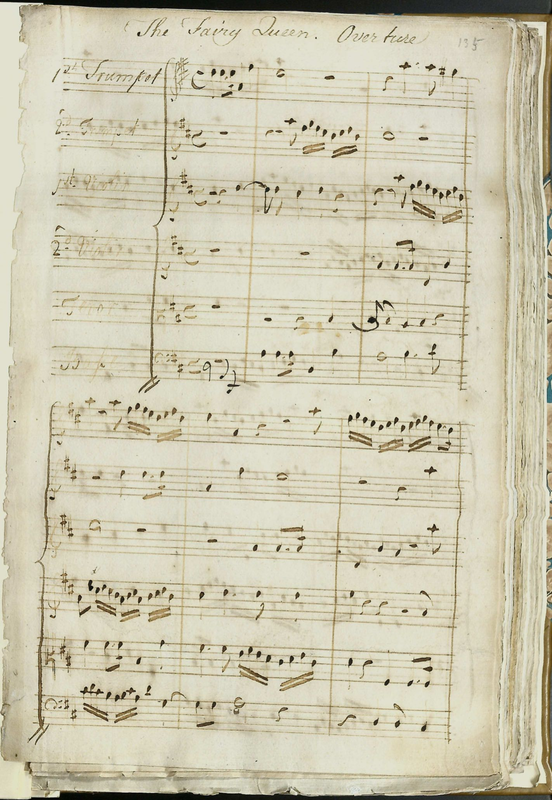 The Fairy Queen. Overture
135
1st Trumpet
2d Trumpet
1st Violin
2d Violin
Tenor
Bass